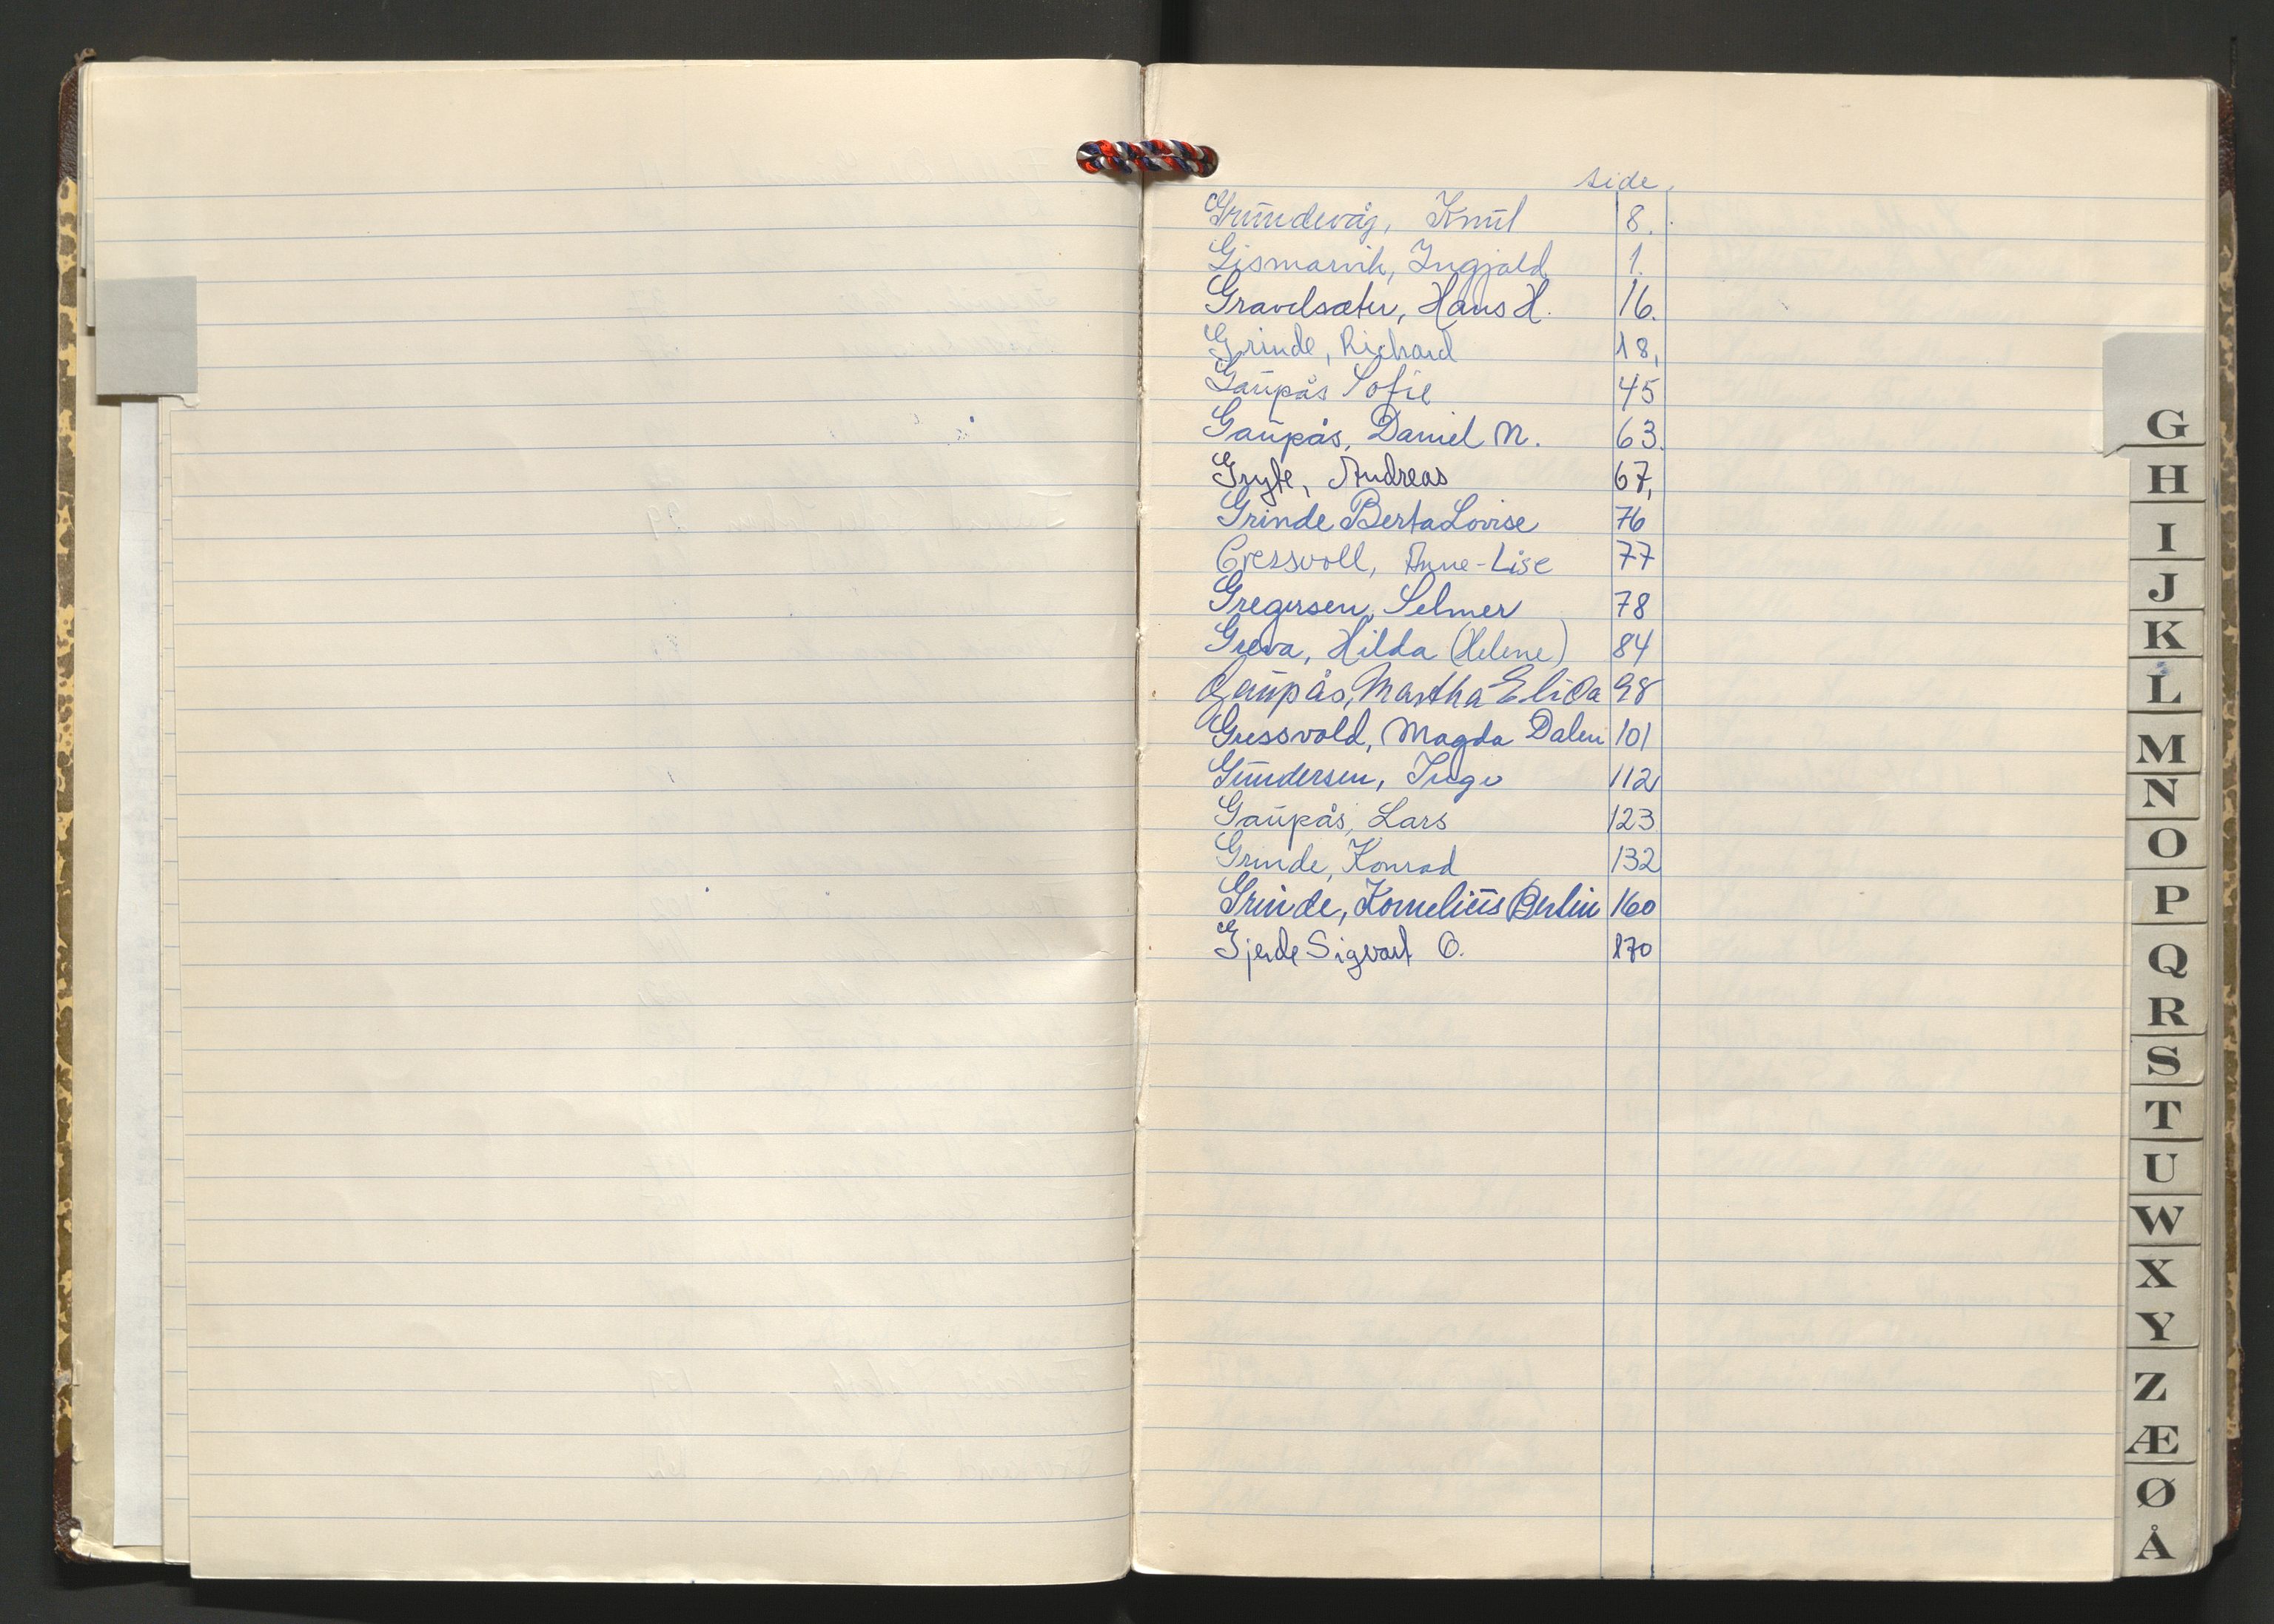 side.
Grundevåg, Knut 8.
Gismarvik, Ingjald 1.
Gravelsæter, Hans H. 16.
Grinde, Richard 18,
Gaupås Sofie 45
Gaupås, Daniel N. 63.
Gryte, Andreas 67,
Grinde Berta Lovise 76
Gressvoll, Anne-Lise 77
Gregersen, Selmer 78
Greva, Hilda (Helene) 84
Gaupås, Martha Elida 98
Gressvold, Magda Dalen 101
Gundersen, Inga 112
Gaupås, Lars 123
Grinde, Konrad 132
Grinde, Kornelius Berlin 160
Gjerde Sigvart O. 170
G
H
I
J
K
L
M
N
O
P
Q
R
S
T
U
W
X
Y
Z
Æ
Ø
Å